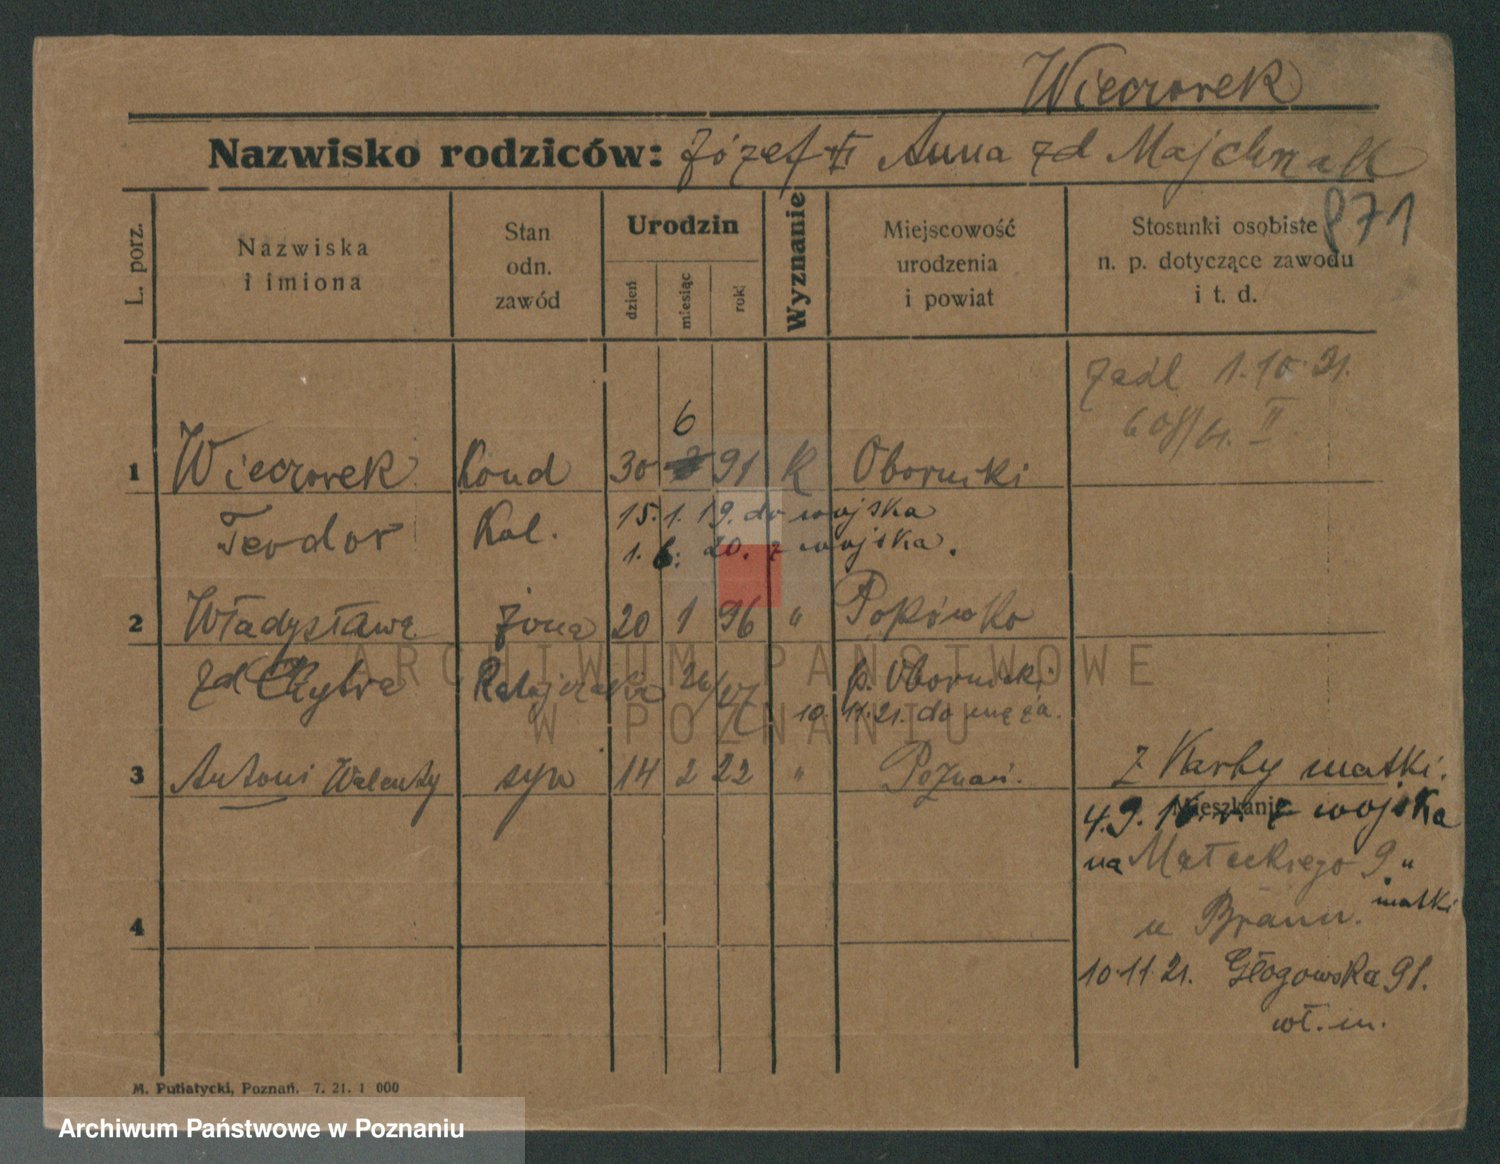 Wieczorek
Nazwisko rodziców: Józef Anna zd Majchrzak
871
L. porz.
Nazwiska i imiona
Stan odn. zawód
Urodzin
dzień
miesiąc
rok
Wyznanie
Miejscowość urodzenia i powiat
Stosunki osobiste n. p. dotyczące zawodu i t. d.
1.10.21.
II
6
1 Wieczorek Kond 30 91 K Oborniki
Teodor Kol. 15.1.19. do wojska
1.6.20. z wojska.
2 Władysława żona 20 1 96 " Popówko
zd Ratajczaka p. Oborniki
10.11.21. do męża.
3 Antoni Walenty syn 14 2 22 " Poznań.
z Karty matki.
Mieszkanie
4.9. z wojska
na Małeckiego 9 "
matki
u
4
10.11 21. Głogowska 98.
wł. m.
M. Putiatycki, Poznań. 7. 21. 1 000
ARCHIWUM PAŃSTWOWE
W POZNANIU
Archiwum Państwowe w Poznaniu